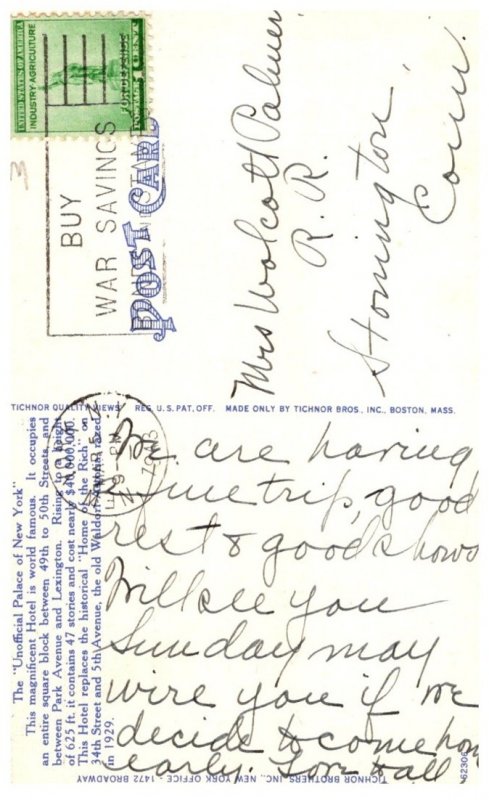 UNITED STATES OF AMERICA
INDUSTRY·AGRICULTURE
FOR DEFENSE
BUY
WAR SAVINGS
POST CARD
Mrs Wolcott Palmer
R. R.
Stonington
Conn.
TICHNOR QUALITY VIEWS REG. U.S. PAT. OFF. MADE ONLY BY TICHNOR BROS., INC., BOSTON, MASS.
The "Unofficial Palace of New York"
This magnificent Hotel is world famous. It occupies
an entire square block between 49th to 50th Streets, and
between Park Avenue and Lexington. Rising to a height
of 625 ft., it contains 47 stories and cost nearly $40,000,000.
This Hotel replaces the historical "Home of the Rich" on
34th Street and 5th Avenue, the old Waldorf-Astoria, razed
in 1929.
We are having
fine trip, good
rest & good shows
Will see you
Sunday may
wire you if we
decide to come home
early. Love to all
TICHNOR BROTHERS, INC., NEW YORK OFFICE, 1472 BROADWAY
62308